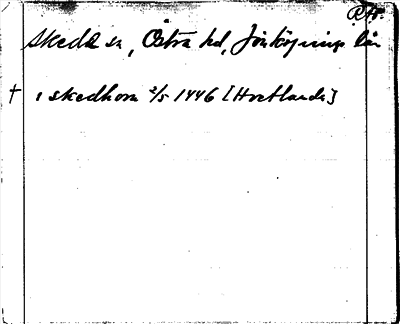 Rt.
Skeda sn, Östra hd, Jönköpings län
† i skedhom 2/5 1446 [Hvetlanda]